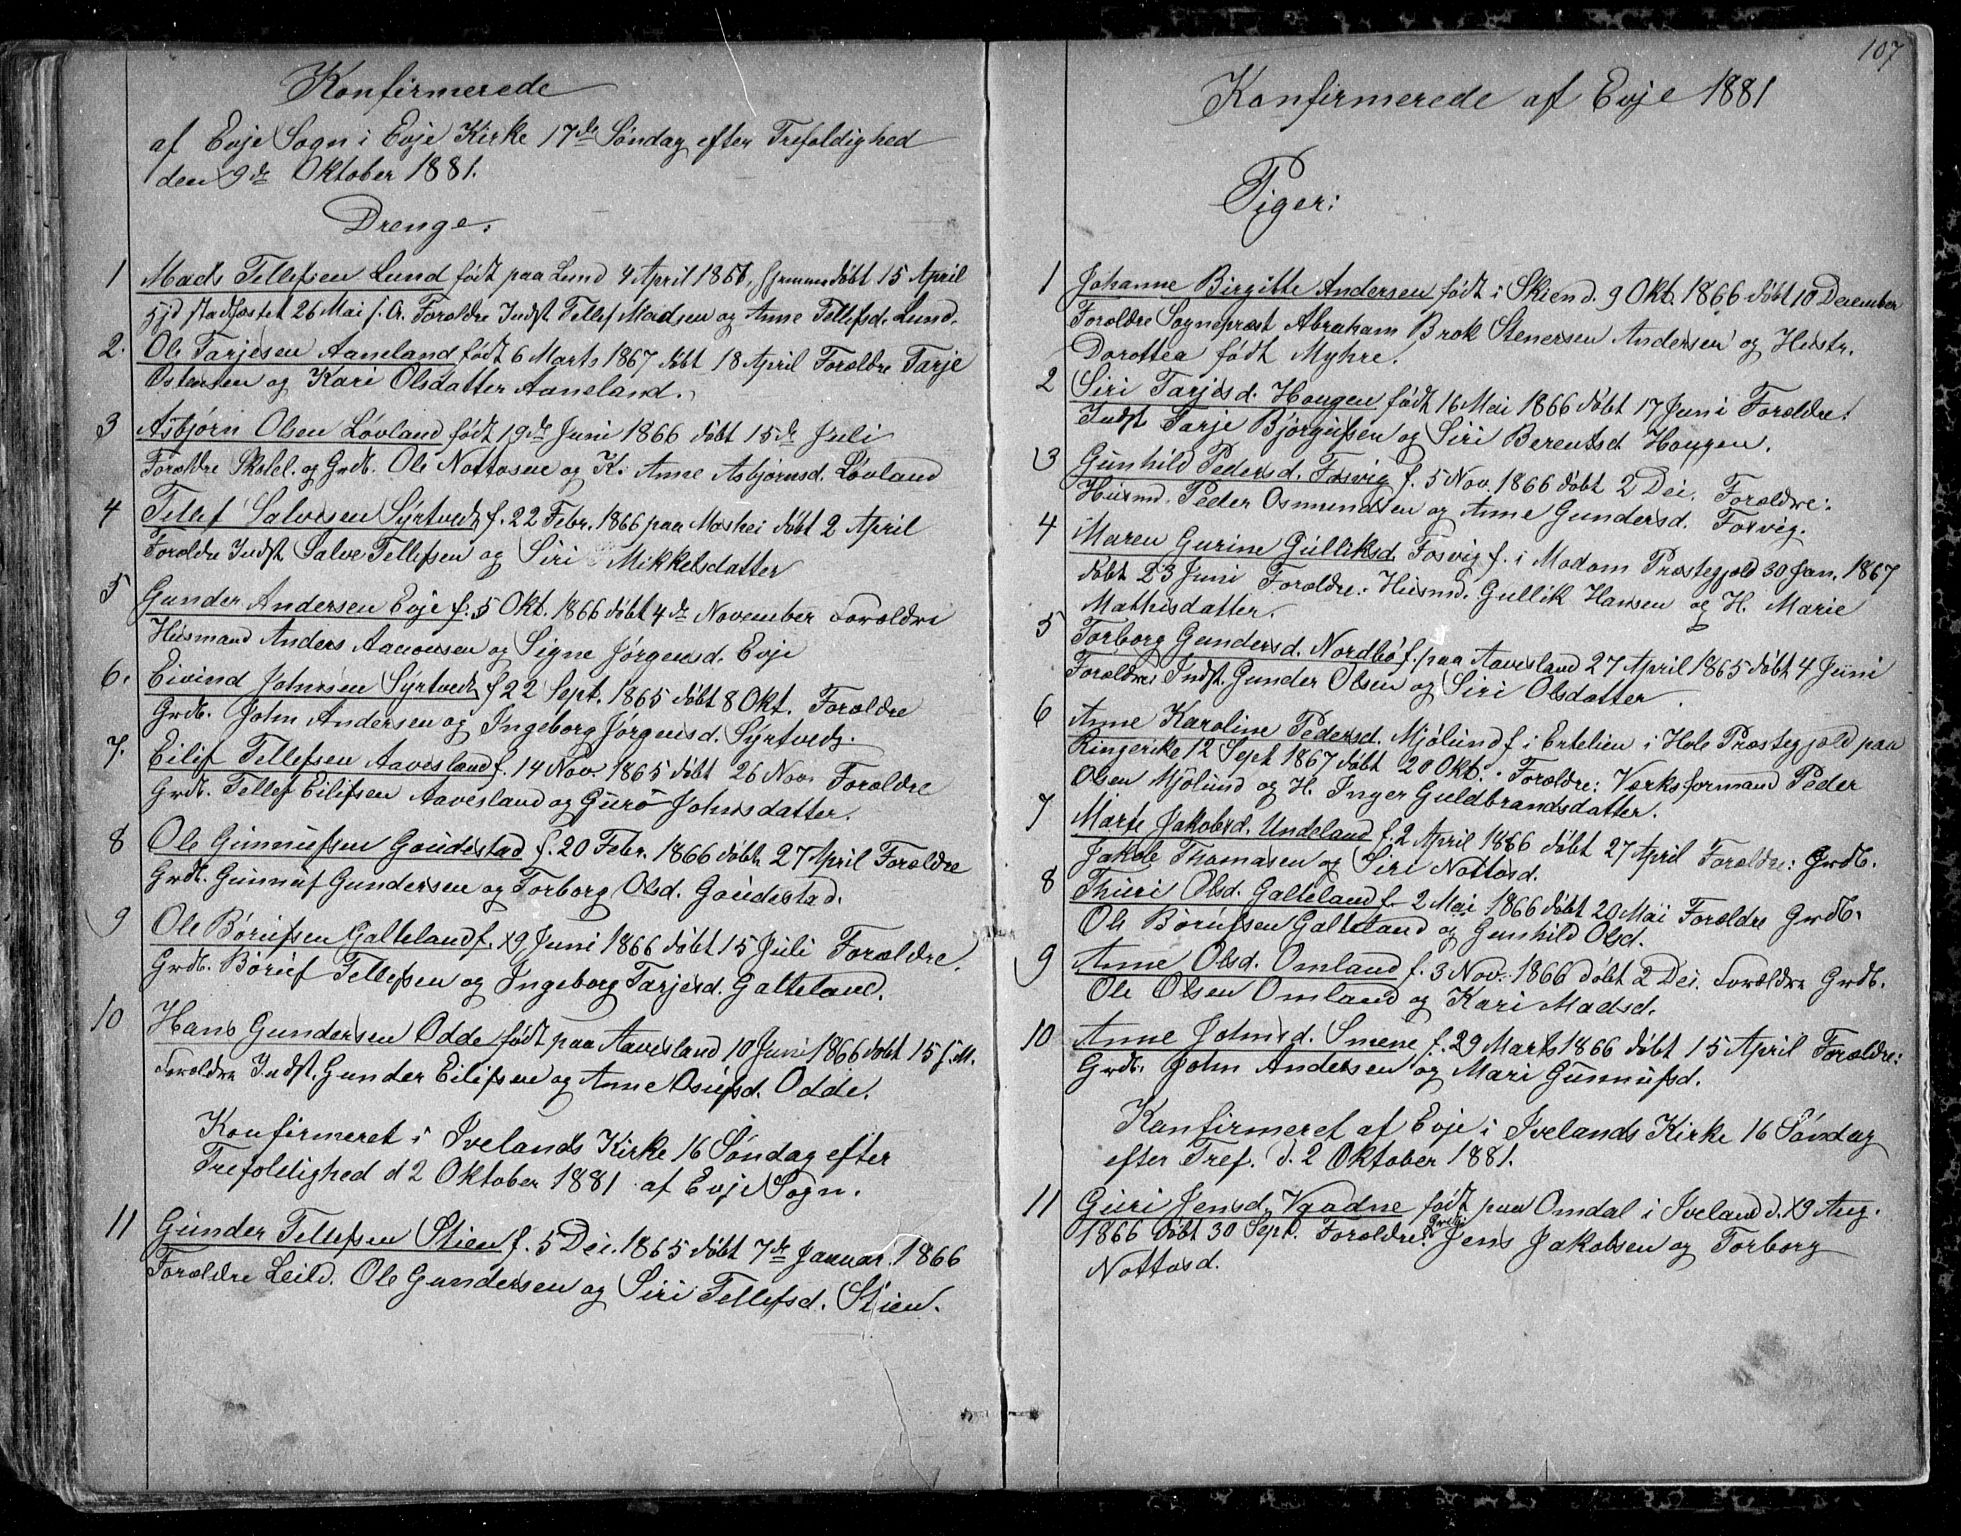 Konfirmerede
af Evje Sogn i Evje Kirke 17de Søndag efter Trefoldighed
den 9de Oktober 1881.
Drenge.
1 Mads Tellefsen Lund født paa Lund 4 April 1866, Hjemmedøbt 15 April
stadfæstet 26 Mai s. A. Forældre Indst Tellef Madsen og Anne Tellefsd. Lund.
2. Ole Tarjesen Aaneland født 6 Marts 1867 døbt 18 April Forældre Tarje
Ostensen og Kari Olsdatter Aaneland.
3 Asbjørn Olsen Løvland født 19de Juni 1866 døbt 15de Juli
Forældre Skolel. og Grdb. Ole Nottosen og K. Anne Asbjørnsd. Løvland
4 Tellef Salvesen Syrtveds f. 22 Febr. 1866 paa Moshei døbt 2 April
Forældre Indst Salve Tellefsen og Siri Mikkelsdatter
5 Gunder Andersen Evje f. 5 Okt. 1866 døbt 4de November Forældre
Husmand Anders Aanonsen og Signe Jørgensd. Evje
6. Eivind Johnsen Syrtveds f 22 Sept. 1865 døbt 8 Okt. Forældre
Grdb. John Andersen og Ingeborg Jørgensd. Syrtveds.
7. Eilif Tellefsen Aavesland f. 14 Nov. 1865 døbt 26 Nov. Forældre
Grdb. Tellef Eilifsen Aavesland og Guro Johnsdatter.
8 Ole Gunnufsen Gaudestad f. 20 Febr. 1866 døbt 27 April Forældre
Grdb. Gunnuf Gundersen og Torborg Olsd. Gaudestad.
9 Ole Børufsen Galteland f. 19 Juni 1866 døbt 15 Juli Forældre
Grdb. Børuf Tellefsen og Ingeborg Tarjesd. Galteland.
10 Hans Gundersen Odde født paa Aavesland 10 Juni 1866 døbt 15 s. M.
Forældre Indst. Gunder Eilifsen og Anne Osufsd. Odde.
Konfirmeret i Ivelands Kirke 16 Søndag efter
Trefoldighed d 2 Oktober 1881 af Evje Sogn.
11 Gunder Tellefsen Stien f. 5 Dec. 1865 døbt 7de Januar 1866
Forældre Leild. Ole Gundersen og Siri Tellefsd. Stien.
107
Konfirmerede af Evje 1881
Piger:
1 Johanne Birgitte Andersen født i Skien d. 9 Okt. 1866 døbt 10 December
Forældre Sognepræst Abraham Brok Stenersen Andersen og Hustr.
Dorottea født Myhre.
2 Siri Tarjesd. Haugen født 16 Mai 1866 døbt 17 Juni Forældre:
Indst Tarje Bjørgufsen og Siri Berentsd Haugen.
3 Gunhild Pedersd. Fosvig f. 5 Nov. 1866 døbt 2 Dec. Forældre:
Husmd. Peder Osmundsen og Anne Gundersd. Fosvig.
4 Maren Gurine Gulliksd. Fosvig f. i Modom Præstegjæld 30 Jan. 1867
døbt 23 Juni Forældre: Husmd. Gullik Hansen og H. Marie
Mathisdatter.
5 Torborg Gundersd. Nordbø f. paa Aavesland 27 April 1865 døbt 4 Juni
Forældre: Indst. Gunder Olsen og Siri Olsdatter.
6 Anne Karoline Pedersd. Mjølund f i Ertelien i Hole Præstegjæld paa
Ringerike 12 Sept 1867 døbt 20 Okt. Forældre: Værksformand Peder
Olsen Mjølund og H. Inger Guldbrandsdatter.
7 Marte Jakobsd. Undeland f. 2 April 1866 døbt 27 April Forældre: Grdb.
Jakob Thomasen og Siri Nottosd.
8 Thuri Olsd. Galteland f. 2 Mai 1866 døbt 20 Mai Forældre Grdb.
Ole Børufsen Galteland og Gunhild Olsd.
9 Anne Olsd. Omland f. 3 Nov. 1866 døbt 2 Dec. Forældre Grdb.
Ole Olsen Omland og Kari Madsd.
10 Anne Johnsd. Smene f. 29 Marts 1866 døbt 15 April Forældre:
Grdb. John Andersen og Mari Gunnufsd.
Konfirmeret af Evje i Ivelands Kirke 16 Søndag
efter Tref. d. 2 Oktober 1881.
11 Guri Jensd. Vaadne født paa Omdal i Iveland d. 19 Aug.
1866 døbt 30 Sept. Forældre: Grdb. Jens Jakobsen og Torborg
Nottosd.